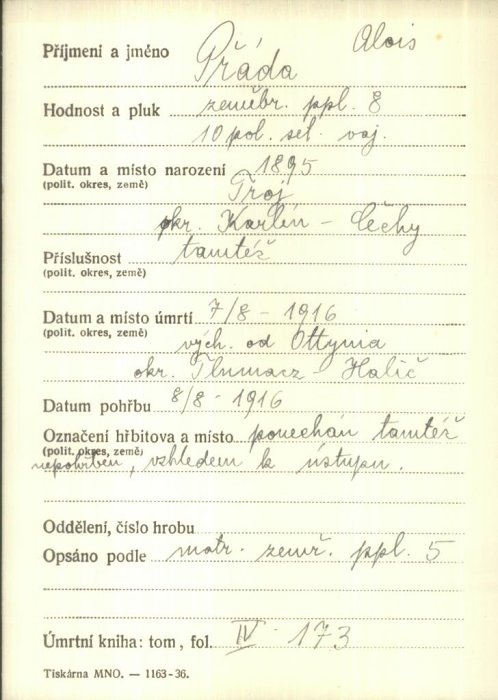 Alois
Příjmení a jméno Přáda
Hodnost a pluk zeměbr. ppl. 8
10 pol. set. voj.
Datum a místo narození 1895
(polit. okres, země) Troj
okr. Karlín - Čechy
Příslušnost tamtéž
(polit. okres, země)
Datum a místo úmrtí 7/8 - 1916
(polit. okres, země) vých. od Ottynia
okr. Tlumacz - Halič
Datum pohřbu 8/8 - 1916
Označení hřbitova a místo ponechán tamtéž
(polit. okres, země)
nepohřben, vzhledem k ústupu.
Oddělení, číslo hrobu
Opsáno podle matr. zemř. ppl. 5
Úmrtní kniha: tom, fol. IV - 173
Tiskárna MNO. — 1163-36.